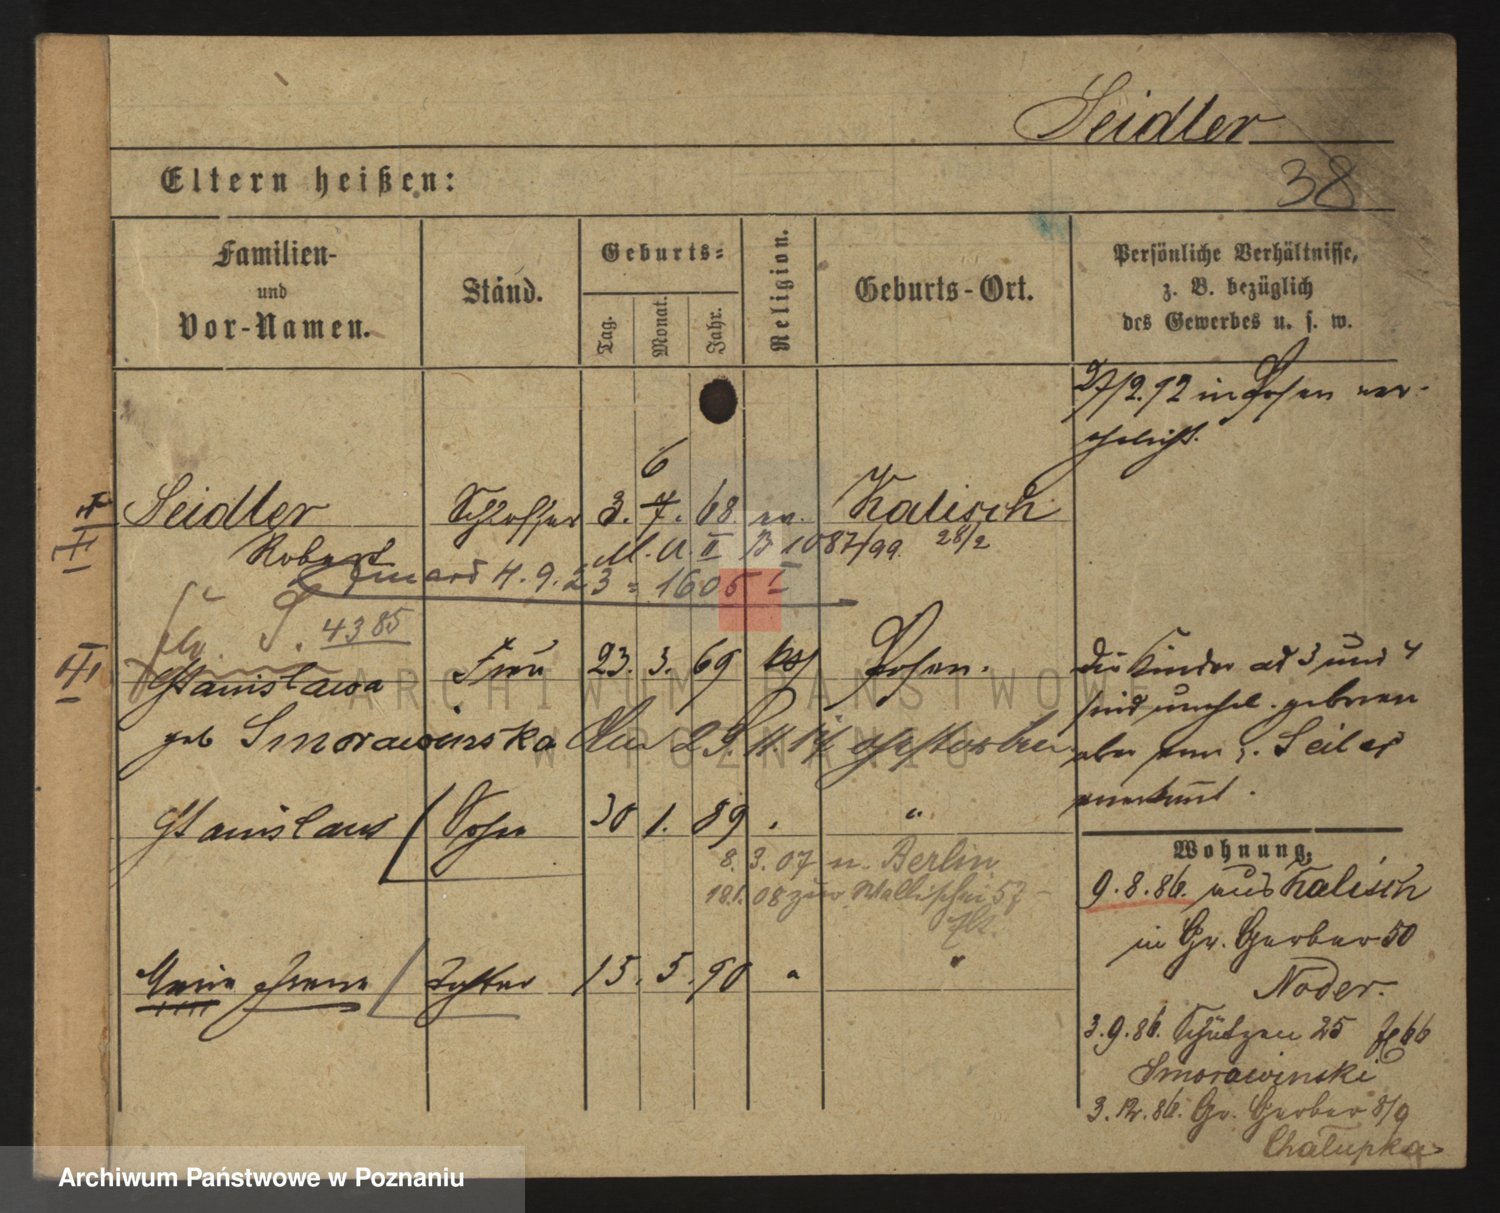 Seidler
38
Eltern heißen:
Familien-
und
Vor-Namen.
Stand.
Geburts-
Tag.
Monat.
Jahr.
Religion.
Geburts-Ort.
Persönliche Verhältnisse,
z. B. bezüglich
des Gewerbes u. s. w.
27/2.92 in Posen ver-
ehelicht.
6
Seidler Schlosser 3. 7. 68. ev. Kalisch
Robert M. A. II B 1087/99. 28/2
Eduard 4. 9. 23 = 1605 I
4385
Stanislawa Frau 23. 3. 69 Posen.
geb Smorawinska Am 29. 11. 14 gestorben
Die Kinder ad 3 und 4
sind unehel. geboren
aber vom
anerkannt.
Stanislaus Sohn 30 1. 89 "
8. 3. 07 n. Berlin
18.1.08 zur. Wallischei 57
Tochter 15. 5. 90 "
Wohnung.
9. 8. 86. aus Kalisch
in Gr. Gerber 50
Noder.
3. 9. 86. Schützen 25
Smorawinski
3. 12. 86. Gr. Gerber 8/9
Chalupka
ARCHIWUM PAŃSTWOWE
W POZNANIU
Archiwum Państwowe w Poznaniu